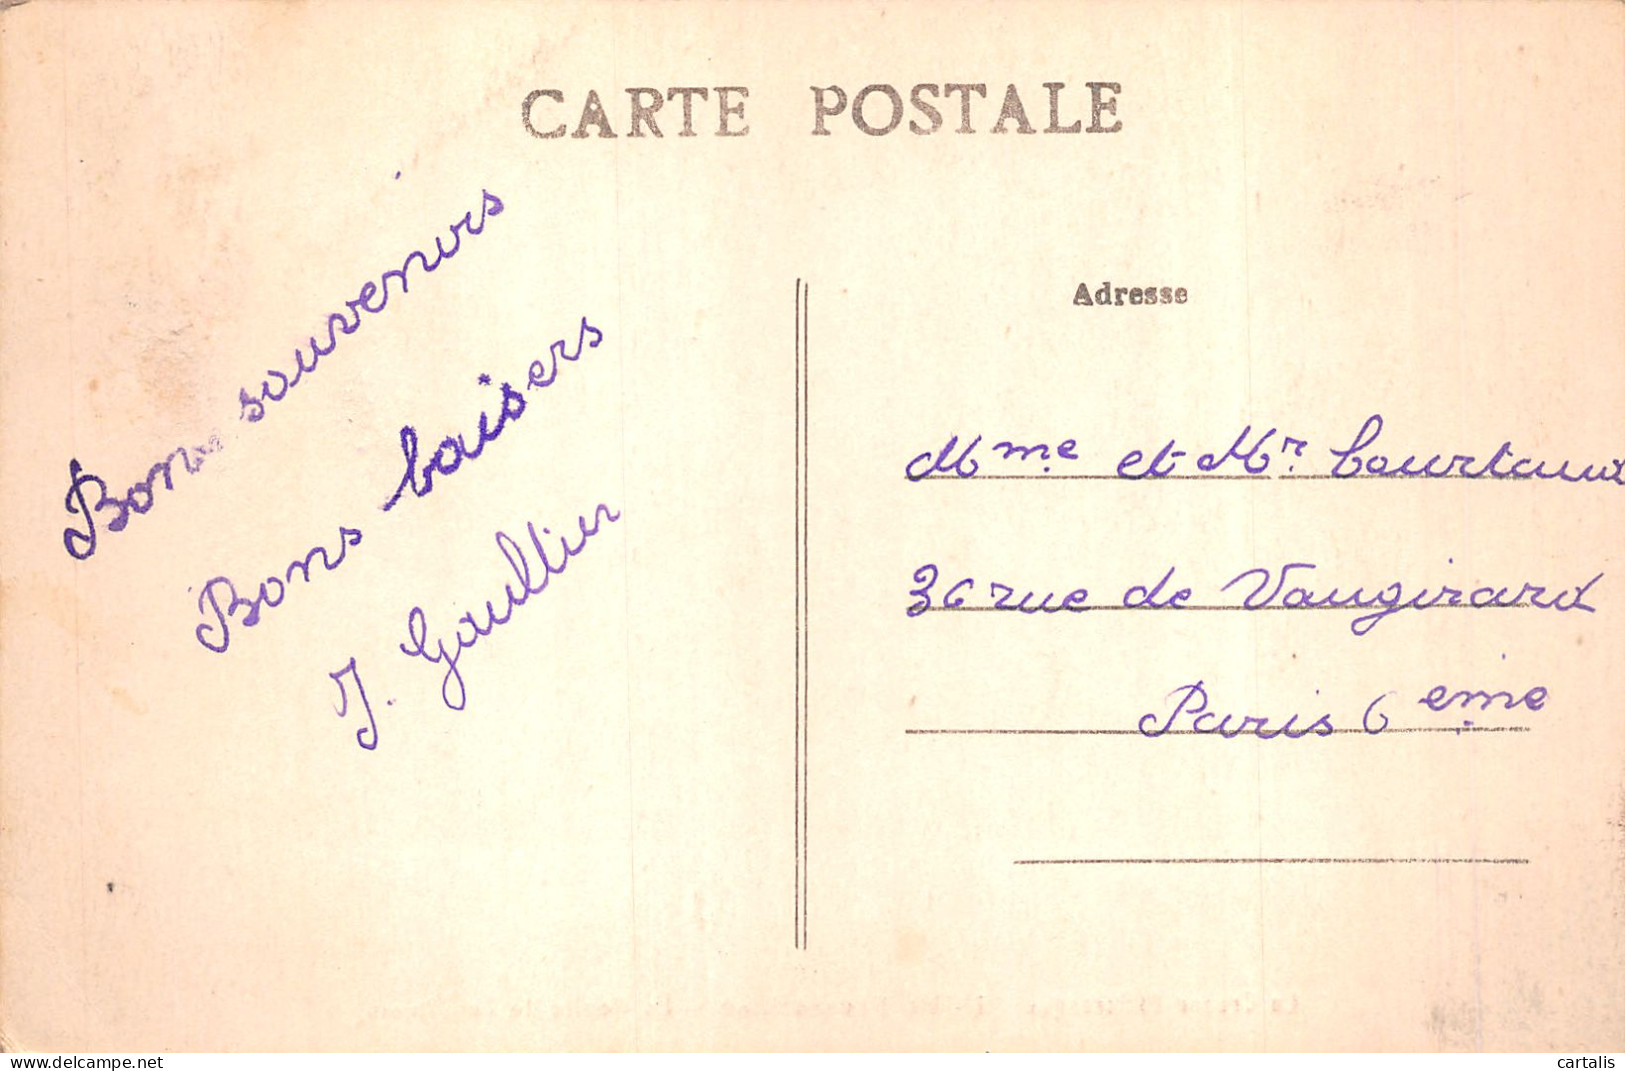 CARTE POSTALE
Bons souvenirs
Bons baisers
J. Gaultier
Adresse
Mme et Mr. Courtaux
36 rue de Vaugirard
Paris 6eme
delcampe.net
cartalis